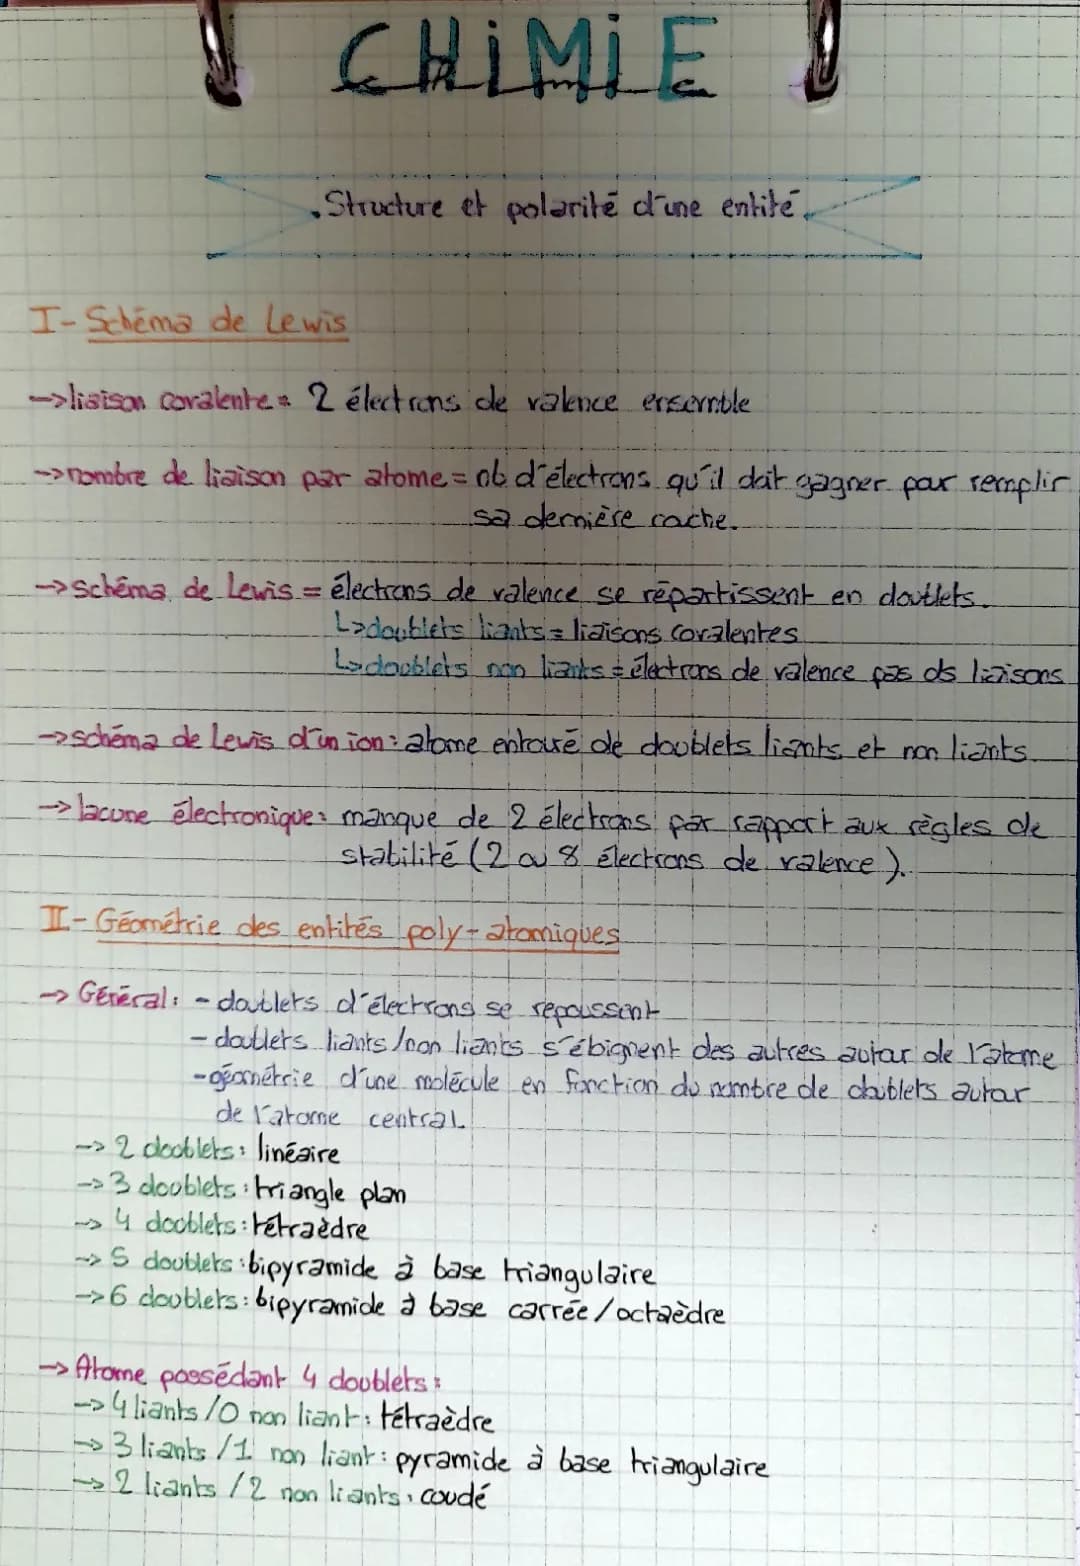 CHiMiE
Structure et polarité d'une entité.
I- Schéma de Lewis
->liaison covalente = 2 électrons de valence ensemble
->nombre de liaison par atome = nb d'électrons qu'il doit gagner pour remplir
sa dernière couche.
->schéma de Lewis = électrons de valence se répartissent en doublets.
↳doublets liants = liaisons covalentes
↳doublets non liants = électrons de valence pas ds liaisons
->schéma de Lewis d'un ion : atome entouré de doublets liants et non liants.
->lacune électronique : manque de 2 électrons par rapport aux règles de
stabilité (2 ou 8 électrons de valence).
II- Géométrie des entités poly-atomiques
-> Général : - doublets d'électrons se repoussent
- doublets liants/non liants s'éloignent des autres autour de l'atome
-géométrie d'une molécule en fonction du nombre de doublets autour
de l'atome central.
-> 2 doublets : linéaire
-> 3 doublets : triangle plan
-> 4 doublets : tétraèdre
-> 5 doublets : bipyramide à base triangulaire
-> 6 doublets : bipyramide à base carrée/octaèdre
-> Atome possédant 4 doublets :
-> 4 liants/0 non liant : tétraèdre
-> 3 liants/1 non liant : pyramide à base triangulaire
-> 2 liants/2 non liants : coudé